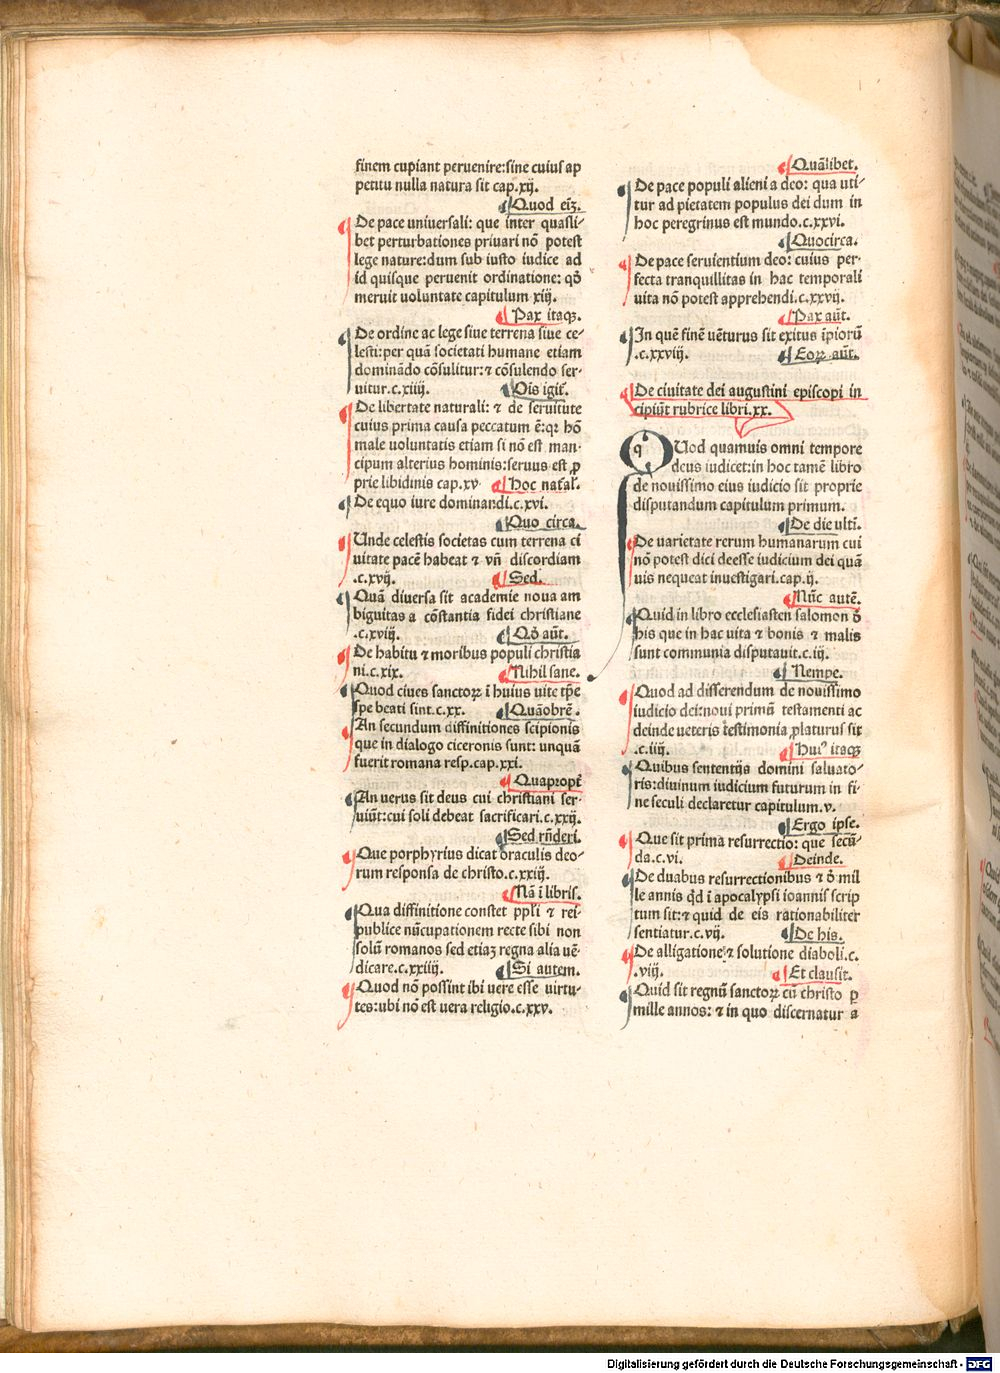 finem cupiant peruenire:sine cuius ap
petitu nulla natura sit cap.xij.
Quod eiꝫ.
De pace uniuersali: que inter quasli-
bet perturbationes priuari nō potest
lege nature:dum sub iusto iudice ad
id quisque peruenit ordinatione: qđ
meruit uoluntate capitulum xiij.
Pax itaqꝫ.
De ordine ac lege siue terrena siue ce-
lesti:per quā societati humane etiam
dominādo cōsulitur:⁊ cōsulendo ser-
uitur.c.xiiij.
Ois igit̄.
De libertate naturali: ⁊ de seruitute
cuius prima causa peccatum ē:qꝛ hō
male uoluntatis etiam si nō est man-
cipum alterius hominis:seruus est ꝓ
prie libidinis cap.xv
Hoc nat̄al̄.
De equo iure dominandi.c.xvi.
Quo circa.
Unde celestis societas cum terrena ci
uitate pacē habeat ⁊ vn̄ discordiam
.c.xvij.
Sed.
Quā diuersa sit academie noua am
biguitas a cōstantia fidei christiane
.c.xviij.
Qđ aūt.
De habitu ⁊ moribus populi christia
ni.c.xix.
Nihil sane.
Quod ciues sanctoꝝ ī huius uite tp̄e
spe beati sint.c.xx.
Quāobrē.
An secundum diffinitiones scipionis
que in dialogo ciceronis sunt: unquā
fuerit romana resp.cap.xxi.
Quapropt̄
An uerus sit deus cui christiani ser-
uiūt:cui soli debeat sacrificari.c.xxij.
Sed rn̄deri.
Que porphyrius dicat oraculis deo-
rum responsa de christo.c.xxiij.
Nā ī libris.
Qua diffinitione constet ppli ⁊ rei-
publice nūcupationem recte sibi non
solū romanos sed etiaꝫ regna alia uē-
dicare.c.xxiiij.
Si autem.
Quod nō possint ibi uere esse uirtu-
tes:ubi nō est uera religio.c.xxv.
Quālibet.
De pace populi alieni a deo: qua uti-
tur ad pietatem populus dei dum in
hoc peregrinus est mundo.c.xxvi.
Quocirca.
De pace seruientium deo: cuius per-
fecta tranquillitas in hac temporali
uita nō potest apprehendi.c.xxvij.
Pax aūt.
In quē finē uēturus sit exitus īpiorū
.c.xxviij.
Eoꝝ aūt.
De ciuitate dei augustini episcopi in
cipiūt rubrice libri.xx.
QUod quamuis omni tempore
deus iudicet:in hoc tamē libro
de nouissimo eius iudicio sit proprie
disputandum capitulum primum.
De die ultī.
De uarietate rerum humanarum cui
nō potest dici deesse iudicium dei quā
uis nequeat inuestigari.cap.ij.
Nūc autē.
Quid in libro ecclesiasten salomon đ
his que in hac uita ⁊ bonis ⁊ malis
sunt communia disputauit.c.iij.
Nempe.
Quod ad differendum de nouissimo
iudicio dei:noui primū testamenti ac
deinde ueteris testimonia ꝓlaturus sit
.c.iiij.
Huiꝰ itaqꝫ
Quibus sententijs domini saluato-
ris:diuinum iudicium futurum in fi-
ne seculi declaretur capitulum.v.
Ergo ipse.
Que sit prima resurrectio: que secū-
da.c.vi.
Deinde.
De duabus resurrectionibus ⁊ đ mil
le annis qđ ī apocalypsi ioannis scrip
tum sit:⁊ quid de eis rationabiliter
sentiatur.c.vij.
De his.
De alligatione ⁊ solutione diaboli.c.
.viij.
Et clausit.
Quid sit regnū sanctoꝝ cū christo ꝑ
mille annos: ⁊ in quo discernatur a
Digitalisierung gefördert durch die Deutsche Forschungsgemeinschaft - DFG